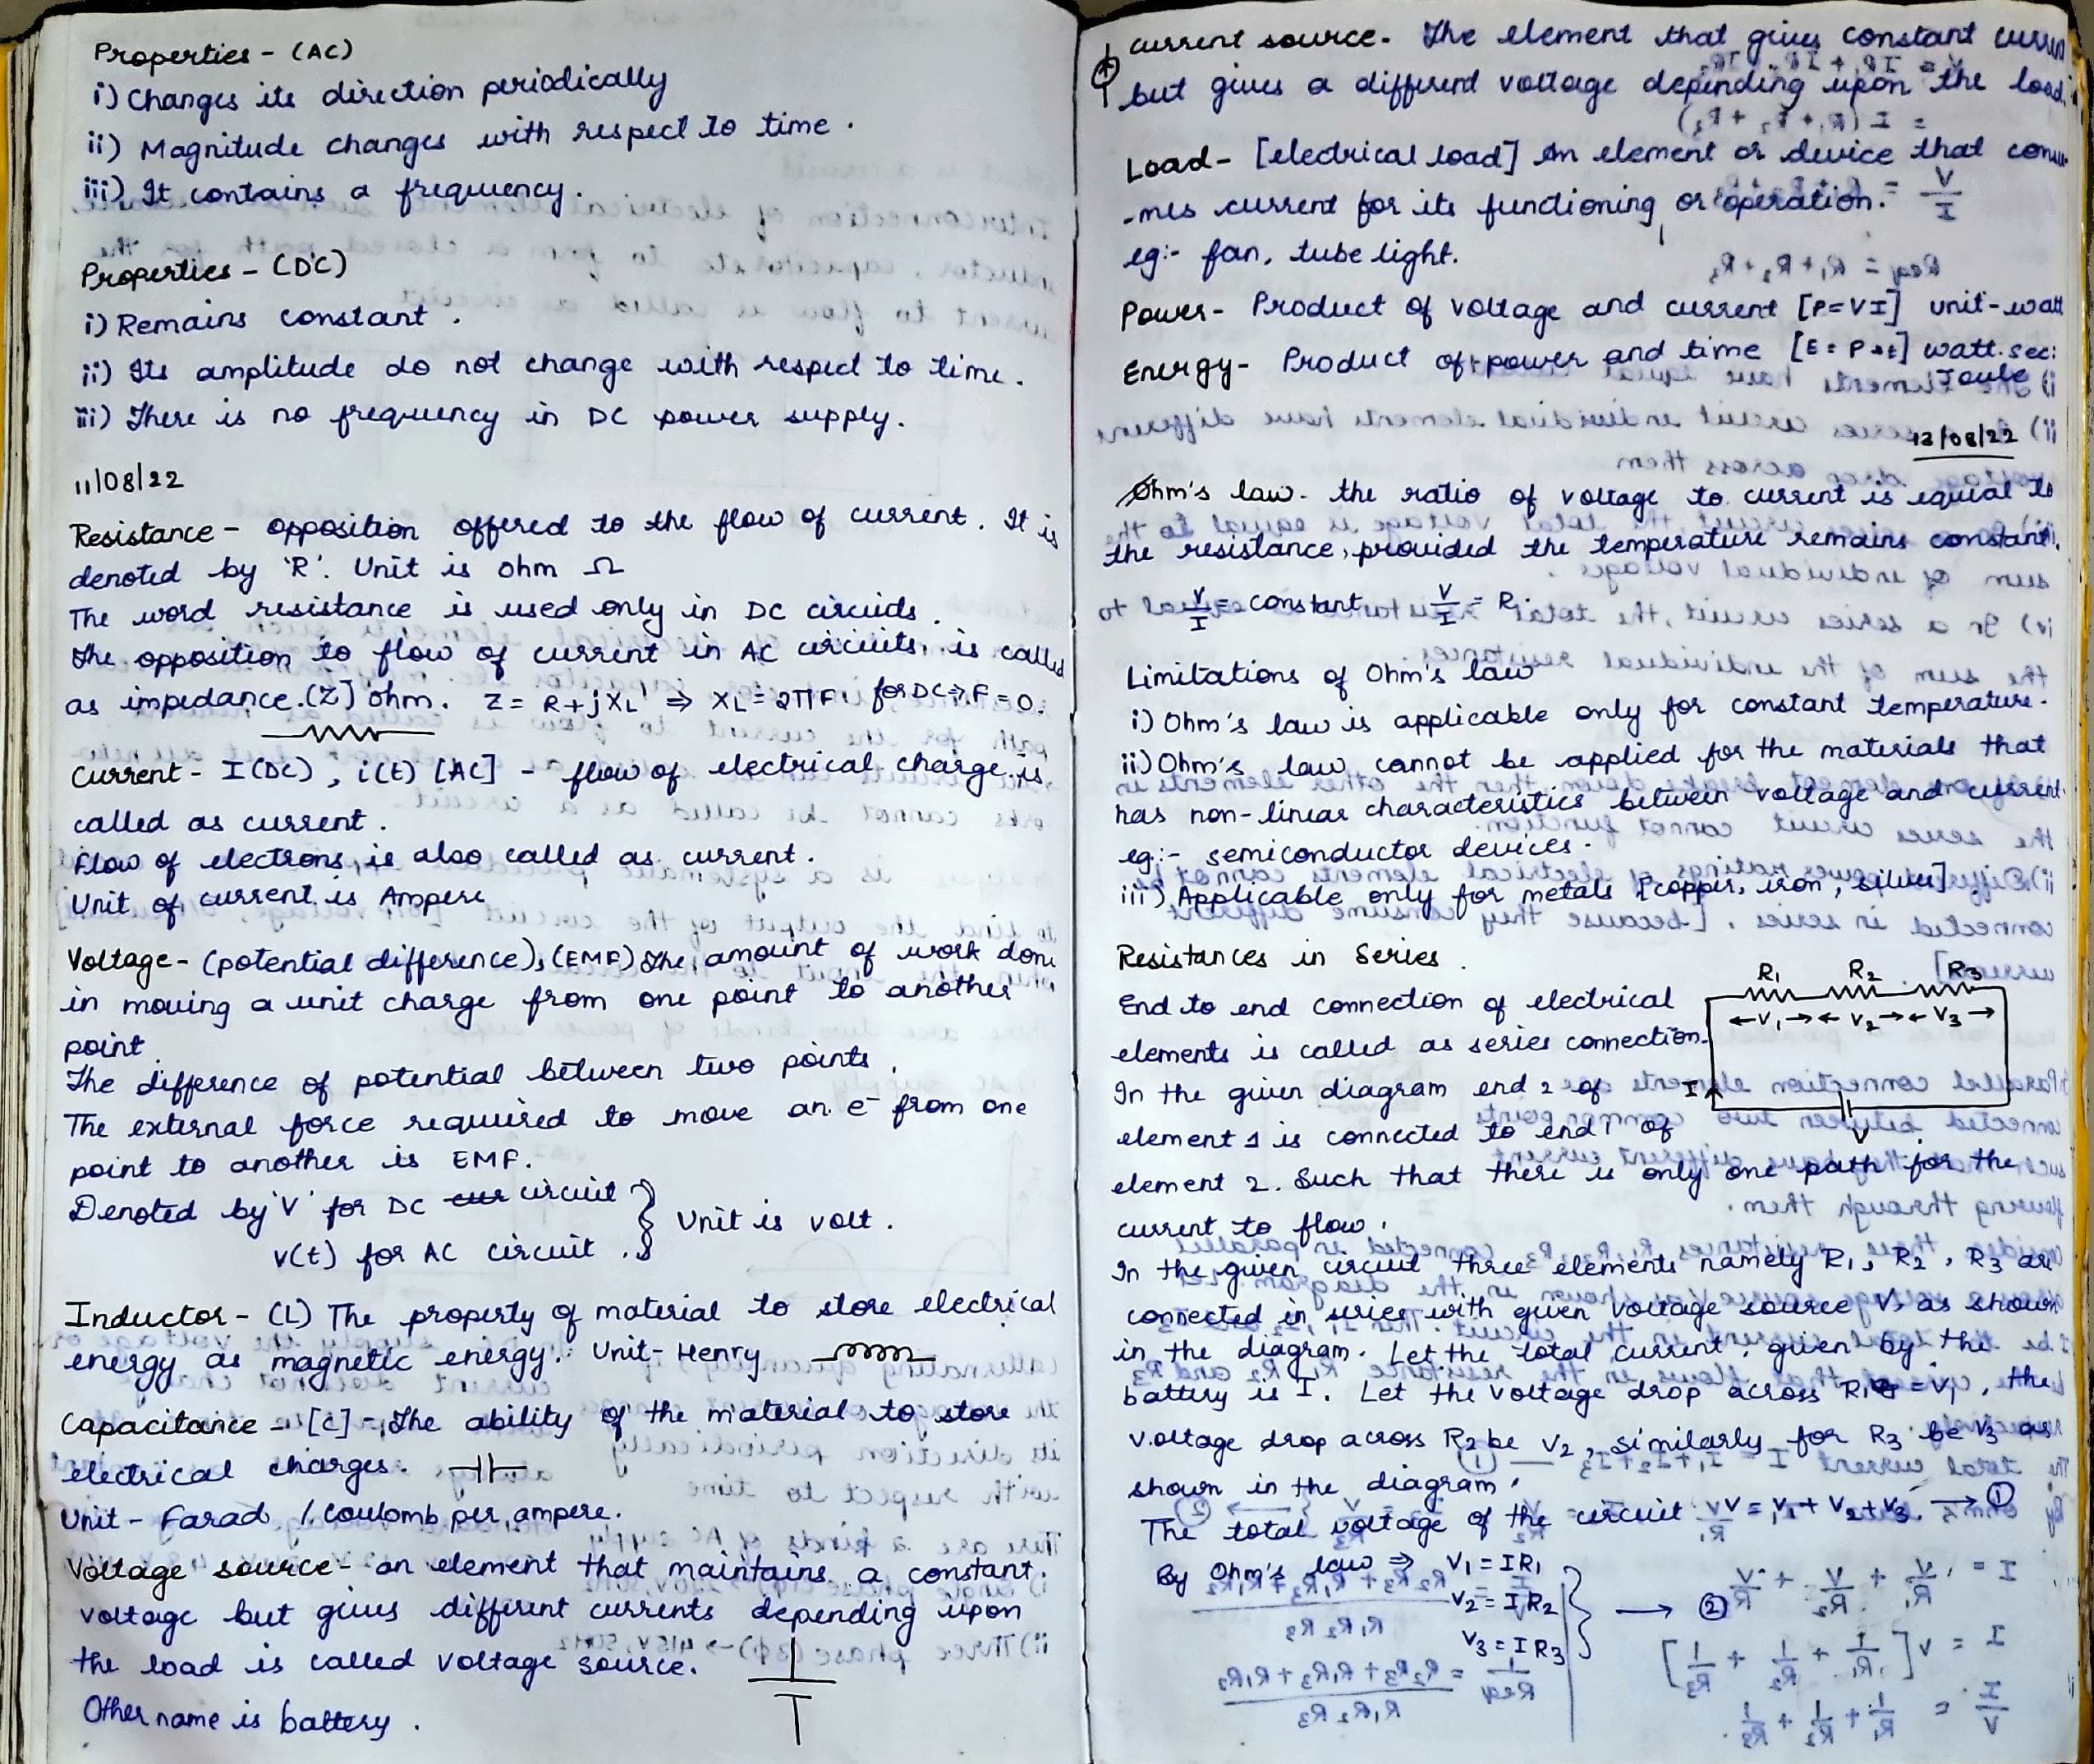 Properties - (AC)
i) Changes its direction periodically
ii) Magnitude changes with respect to time.
iii) It contains a frequency.
Properties - (DC)
i) Remains constant.
ii) Its amplitude do not change with respect to time.
iii) There is no frequency in DC power supply.
11/08/22
Resistance - opposition offered to the flow of current. It is
denoted by 'R'. Unit is ohm Ω
The word resistance is used only in DC circuits.
The opposition to flow of current in AC circuits is called
as impedance.(Z] ohm. Z = R+jXL ⇒ XL = 2πF for DC ⇒ F=0.
Current - I(DC), i(t) [AC] - flow of electrical charge is
called as current.
Flow of electrons is also called as current.
Unit of current is Ampere
Voltage - (potential difference), (EMF) The amount of work done
in moving a unit charge from one point to another
point.
The difference of potential between two points.
The external force required to move an e⁻ from one
point to another is EMF.
Denoted by 'V' for DC circuit } Unit is volt.
v(t) for AC circuit.
Inductor - (L) The property of material to store electrical
energy as magnetic energy. Unit - Henry
Capacitance - [c] - The ability of the material to store
electrical charges.
Unit - Farad / coulomb per ampere.
Voltage source - an element that maintains a constant
voltage but gives different currents depending upon
the load is called voltage source.
Other name is battery.
current source - The element that gives constant
but gives a different voltage depending upon the load.
Load - [electrical load] An element or device that consu
-mes current for its functioning or operation.
eg:- fan, tube light.
Power - Product of voltage and current [P=VI] unit-watt
Energy - Product of power and time [E = P×t] watt.sec:
Joule
12/08/22
Ohm's law - the ratio of voltage to current is equal to
the resistance, provided the temperature remains constant.
V/I = constant V/I = R.
Limitations of Ohm's law
i) Ohm's law is applicable only for constant temperature.
ii) Ohm's law cannot be applied for the materials that
has non-linear characteristics between voltage and current.
eg:- semiconductor devices.
iii) Applicable only for metals [copper, iron, silver].
Resistances in Series.
R1 R2 R3
←V1→ ← V2 → ← V3 →
I
V
End to end connection of electrical
elements is called as series connection.
In the given diagram end 2 of
element 1 is connected to end 1 of
element 2. Such that there is only one path for the
current to flow.
In the given circuit three elements namely R1, R2, R3 are
connected in series with given voltage source V, as shown
in the diagram. Let the total current given by the
battery is I. Let the voltage drop across R1 = V1, the
voltage drop across R2 be V2, similarly for R3 be V3 as
shown in the diagram.
The total voltage of the circuit V = V1 + V2 + V3. → ①
By Ohm's law ⇒ V1 = IR1
V2 = IR2 } → ②
V3 = IR3